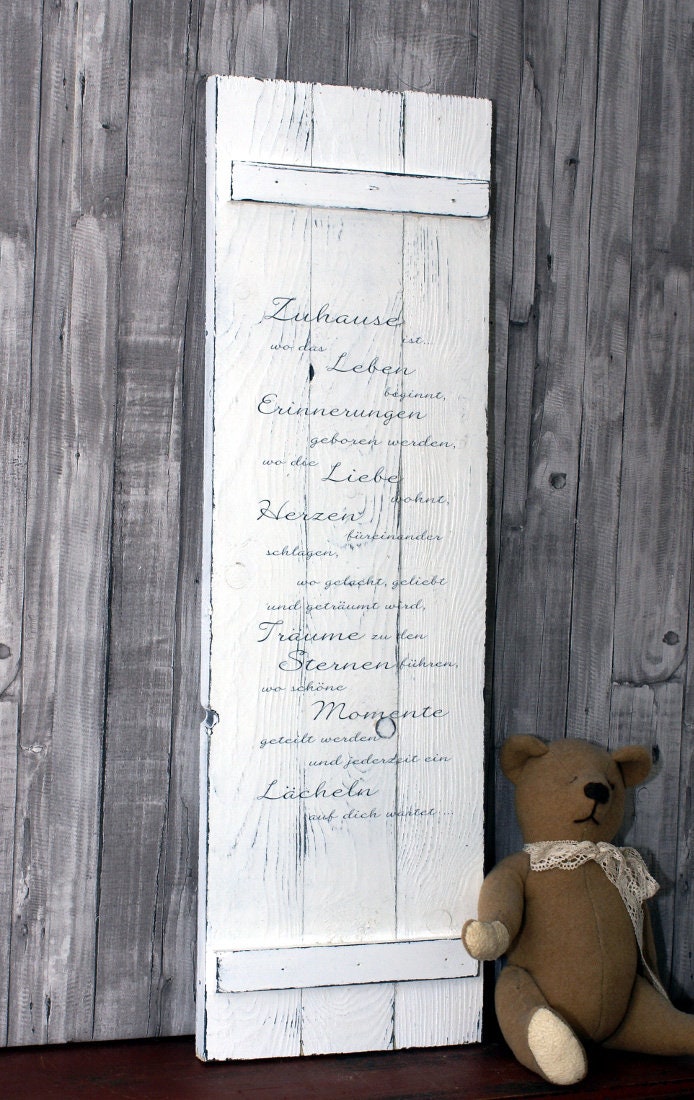 Zuhause
ist...
wo das
Leben
beginnt,
Erinnerungen
geboren werden,
wo die
Liebe
wohnt,
Herzen
füreinander
schlagen,
wo gelacht, geliebt
und geträumt wird,
Träume zu den
Sternen führen,
wo schöne
Momente
geteilt werden
und jederzeit ein
Lächeln
auf dich wartet....